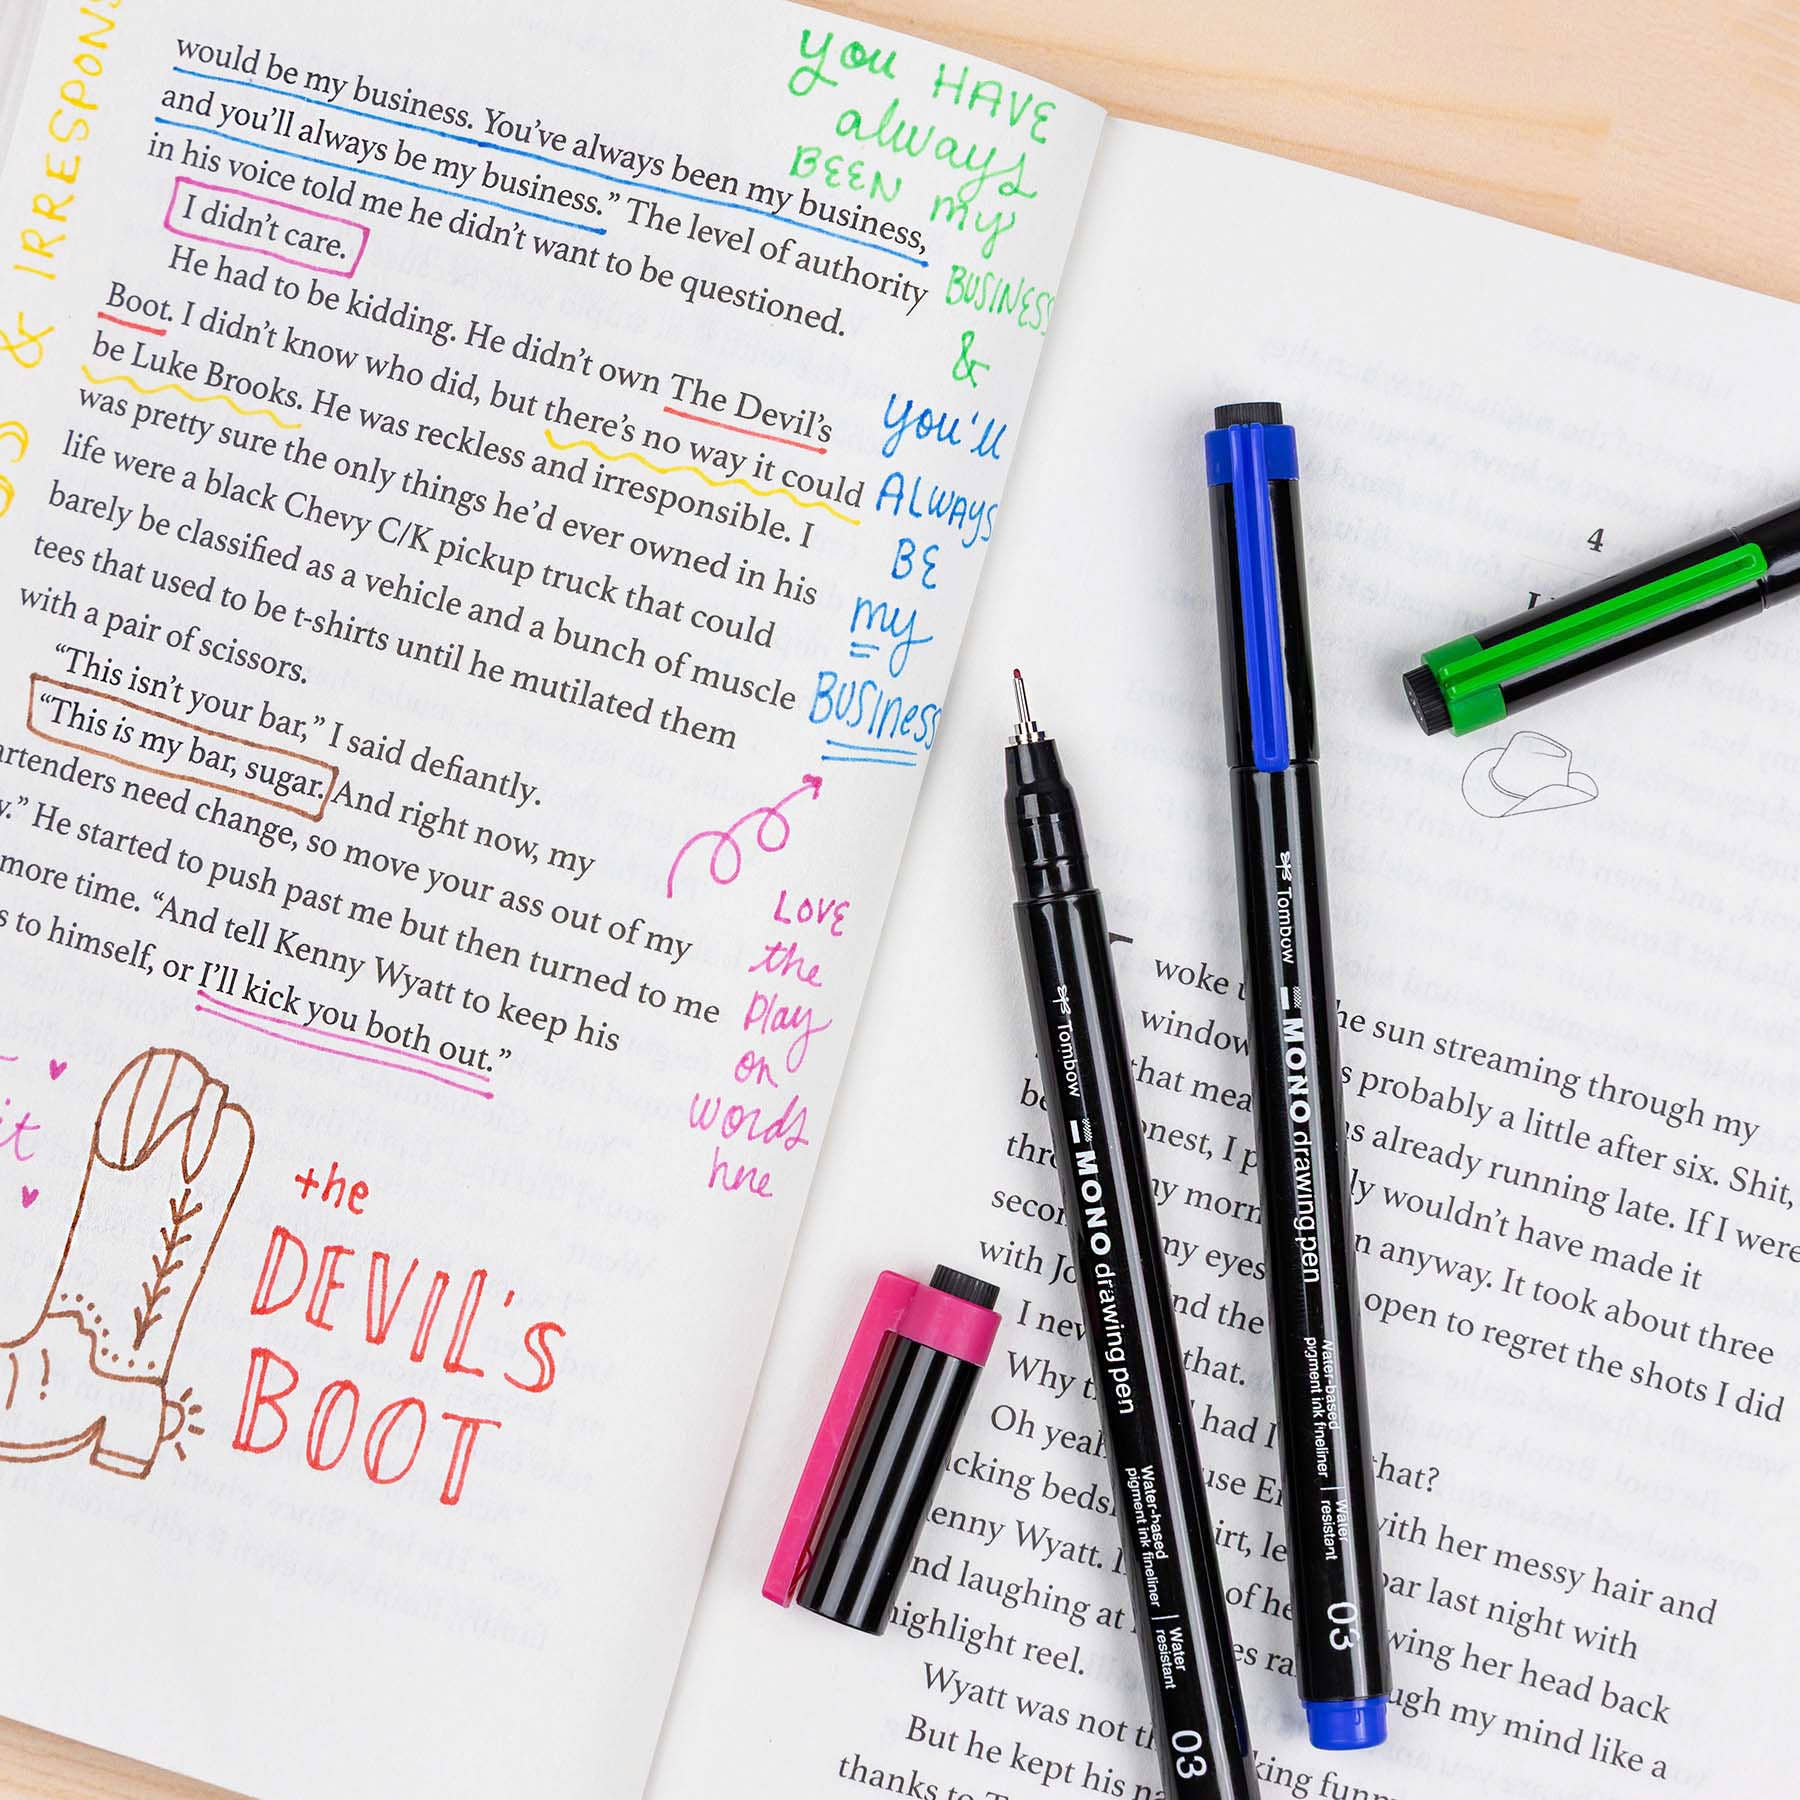 & IRRESPONS
would be my business. You've always been my business,
and you'll always be my business." The level of authority
in his voice told me he didn't want to be questioned.
I didn't care.
He had to be kidding. He didn't own The Devil's
Boot. I didn't know who did, but there's no way it could
be Luke Brooks. He was reckless and irresponsible. I
was pretty sure the only things he'd ever owned in his
life were a black Chevy C/K pickup truck that could
barely be classified as a vehicle and a bunch of muscle
tees that used to be t-shirts until he mutilated them
with a pair of scissors.
"This isn't your bar," I said defiantly.
"This is my bar, sugar. And right now, my
artenders need change, so move your ass out of my
y." He started to push past me but then turned to me
more time. "And tell Kenny Wyatt to keep his
s to himself, or I'll kick you both out."
you HAVE
always
BEEN my
BUSINESS
&
you'll
ALWAYS
BE
my
BUSINESS
LOVE
the
play
on
words
here
it
the
DEVIL'S
BOOT
4
woke u he sun streaming through my
window s probably a little after six. Shit,
that mea s already running late. If I were
be onest, I p ly wouldn't have made it
thr my morn n anyway. It took about three
secon my eyes open to regret the shots I did
with Jo nd the
I nev that.
Why t had I that?
Oh yeah use E with her messy hair and
cking beds irt, le bar last night with
enny Wyatt. I of he wing her head back
nd laughing at es ra ugh my mind like a
highlight reel.
Wyatt was not th king funn
But he kept his na
thanks to
Tombow
MONO drawing pen
Water-based
pigment ink fineliner
Water
resistant
03
Tombow
MONO drawing pen
Water-based
pigment ink fineliner
Water
resistant
03